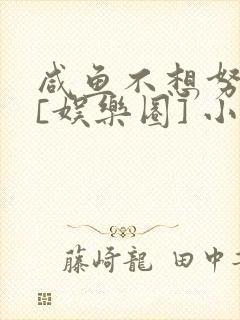 咸鱼不想努
[娱樂圈] 小
藤崎龍 田中